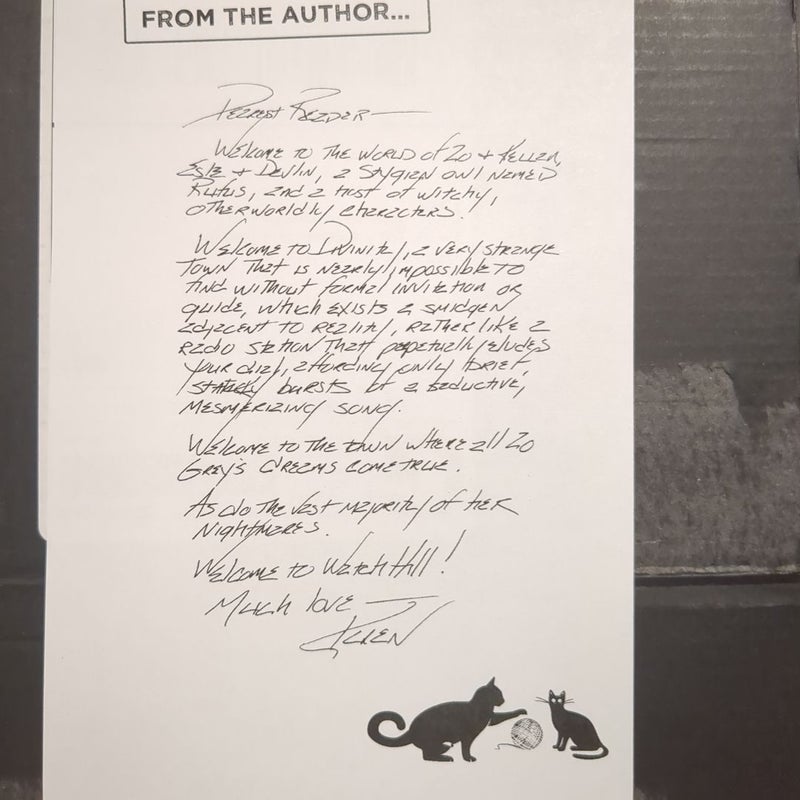 FROM THE AUTHOR...
Dearest Reader—
Welcome to the world of Zo + Kellan,
Este + Devlin, a Stygian owl named
Rufus, and a host of witchy,
otherworldly characters!
Welcome to Divinity, a very strange
town that is nearly impossible to
find without formal invitation or
guide, which exists a smidgen
adjacent to reality, rather like a
radio station that perpetually eludes
your dial, affording only brief,
staticky bursts of a seductive,
mesmerizing song.
Welcome to the town where all Zo
Grey's dreams come true.
As do the vast majority of her
nightmares.
Welcome to Watch Hill!
Much love —
Karen